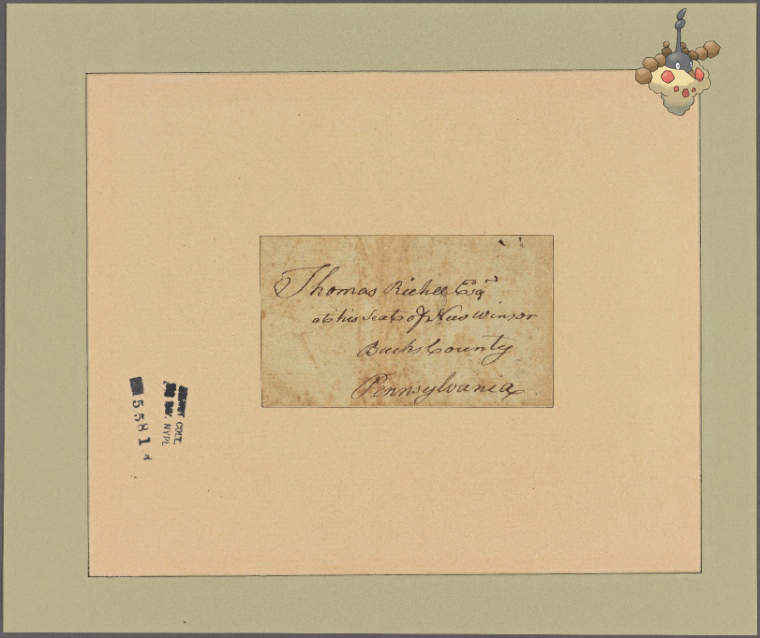 Thomas Riche Esqr
at his Seat of New Winsor
Bucks County
Pennsylvania
5581
EMMET COLL.
NYPL